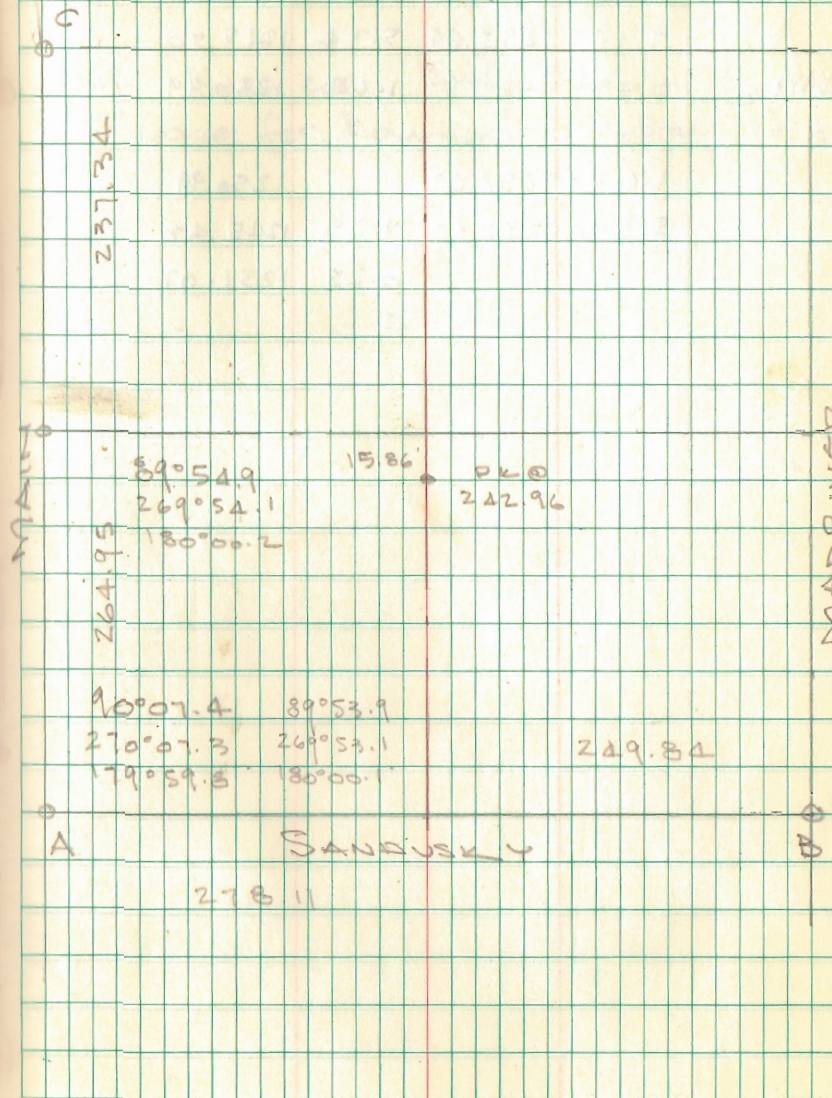 C
237.34
MAIN
89°54.9
269°54.1
180°00.2
15.86'
PK @
242.96
264.95
90°07.4
270°07.3
179°59.8
89°53.9
269°53.1
180°00.1
249.84
A
SANDUSKY
B
278.11